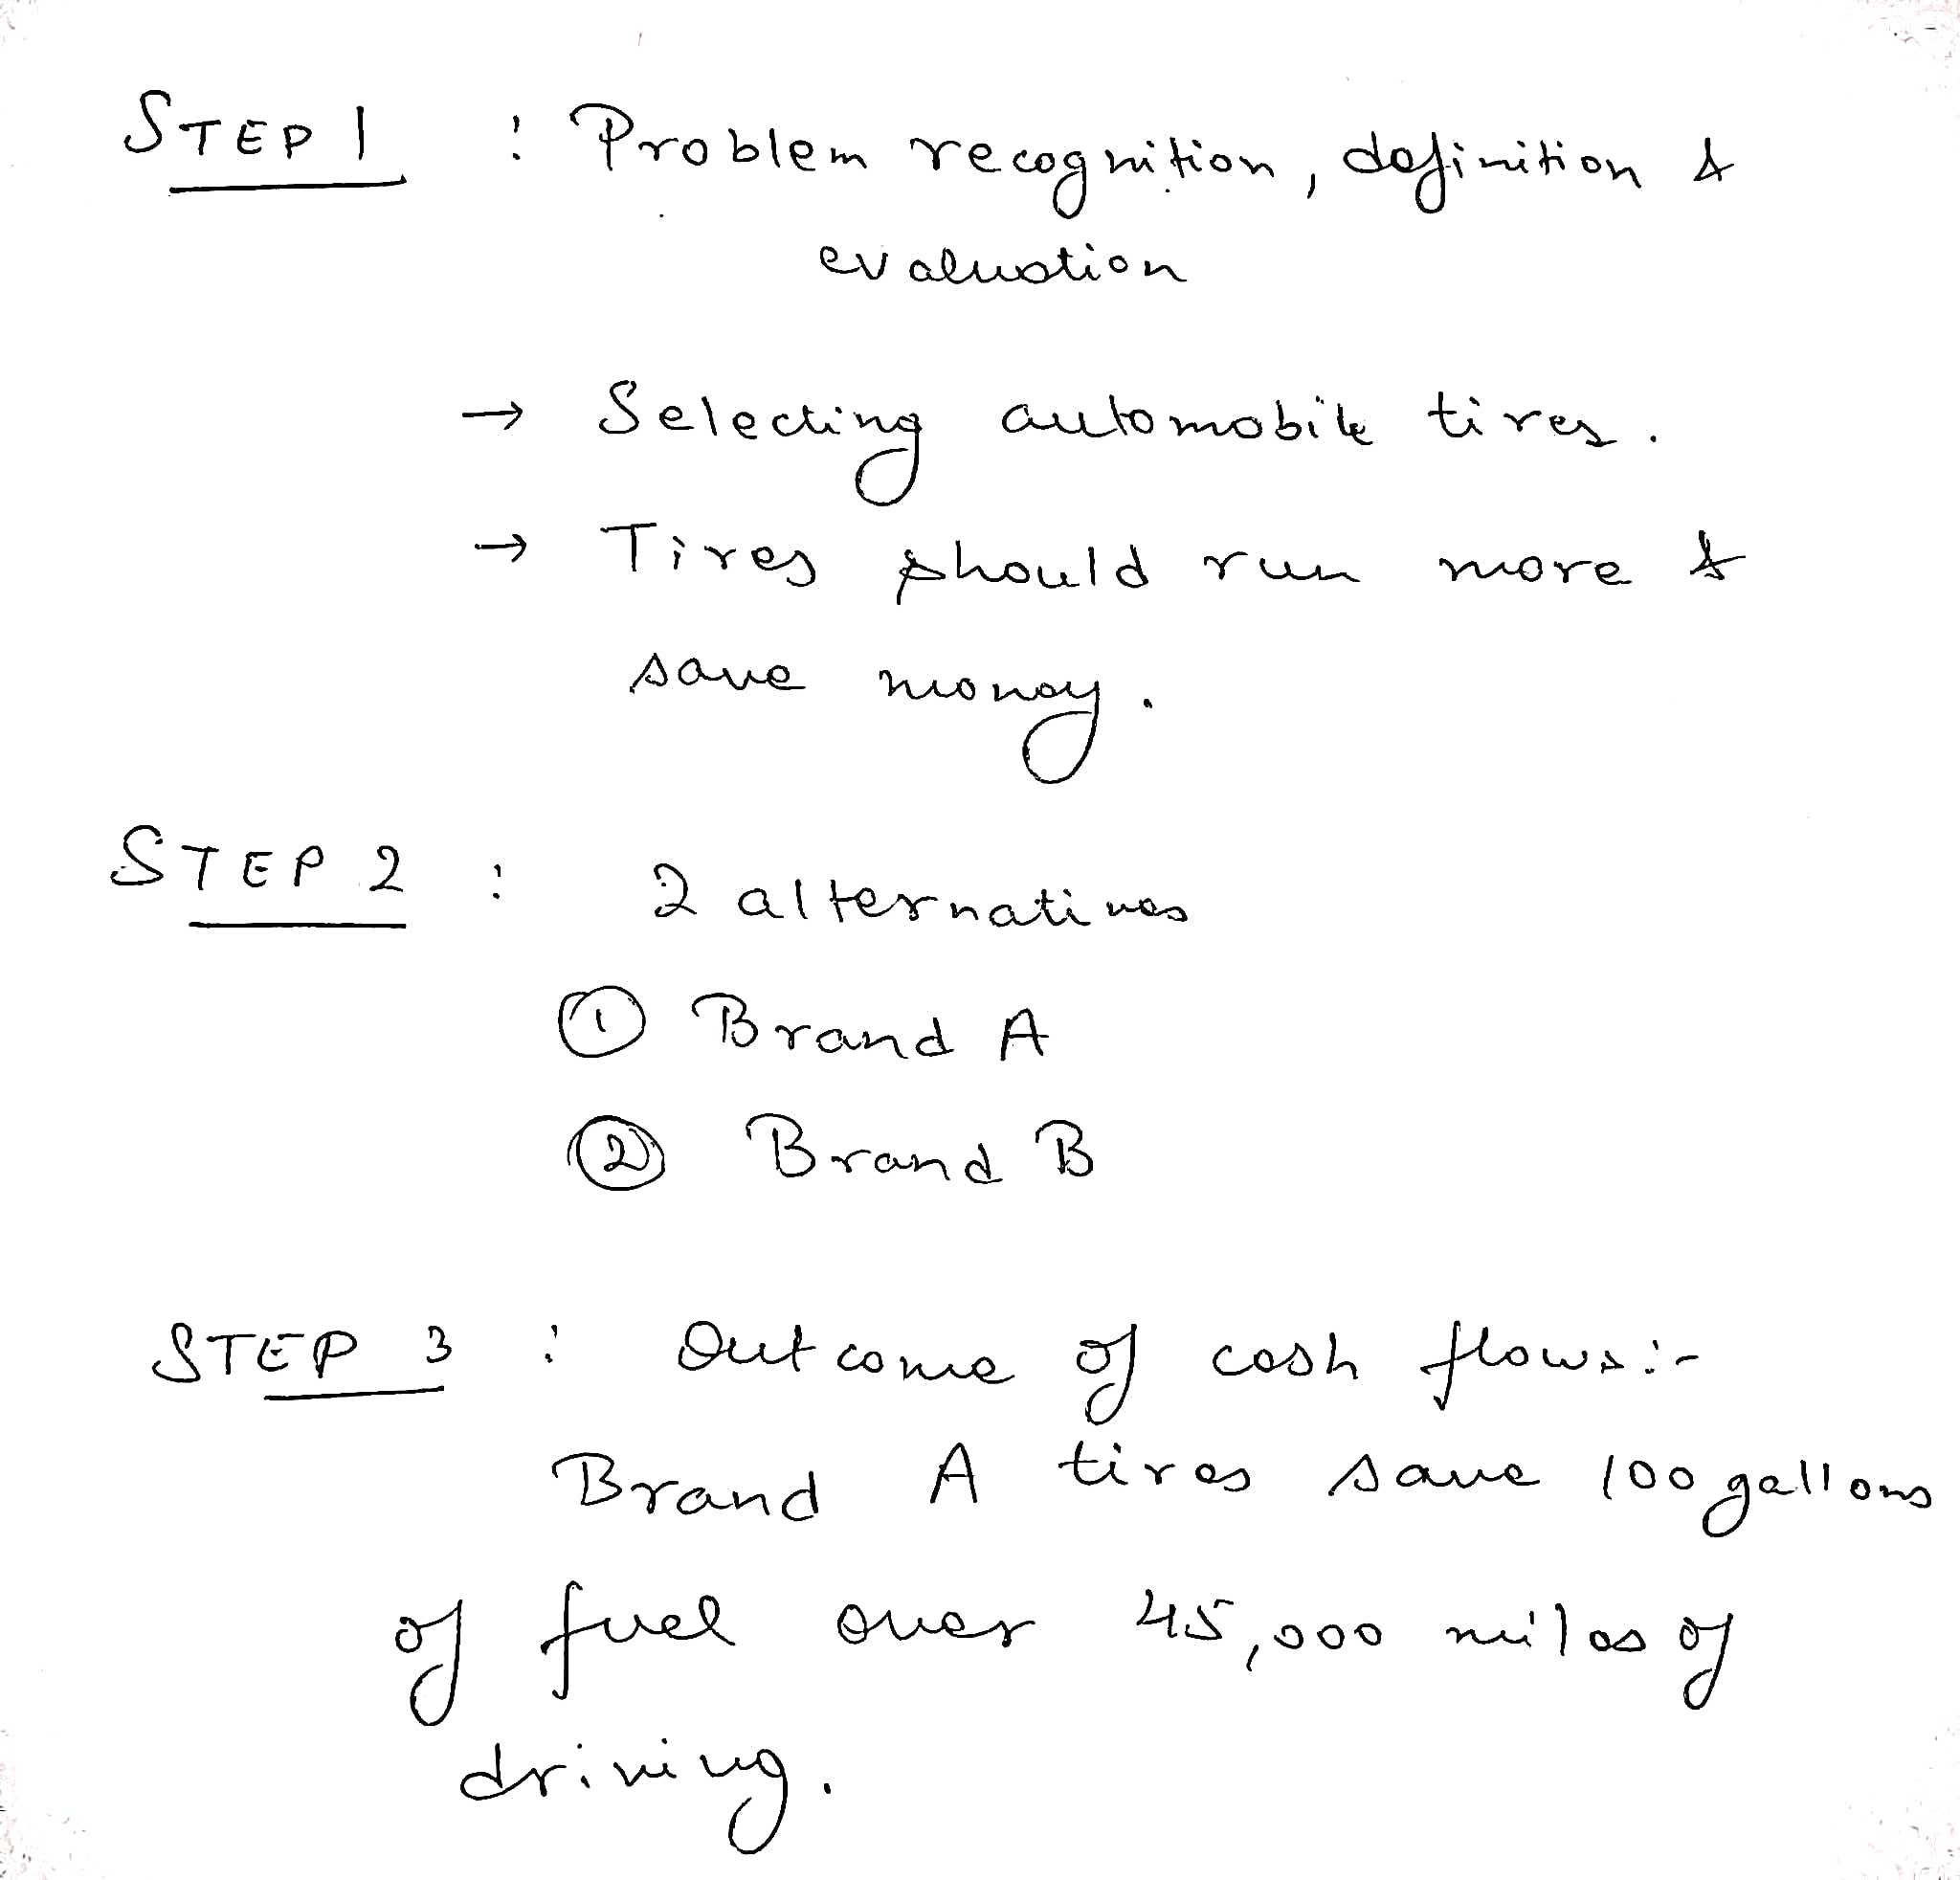 STEP 1 : Problem recognition, definition &
evaluation
→ Selecting automobile tires.
→ Tires should run more &
save money.
STEP 2 : 2 alternatives
① Brand A
② Brand B
STEP 3 : Outcome of cash flows:-
Brand A tires save 100 gallons
of fuel over 45,000 miles of
driving.